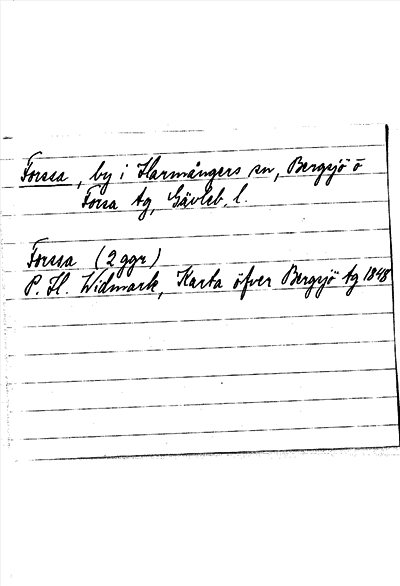 Forssa, by i Harmångers sn, Bergsjö o
Forsa tg, Gävleb. l.
Forssa (2 ggr)
P. H. Widmark, Karta öfver Bergsjö tg 1848